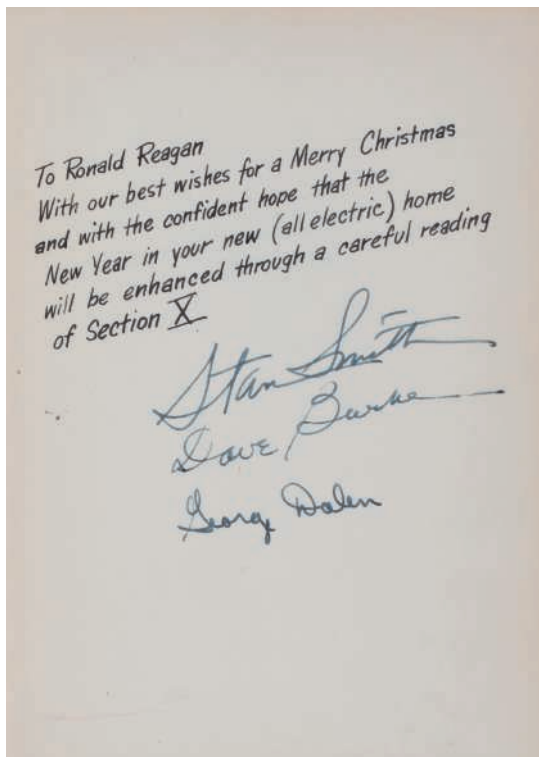 To Ronald Reagan
With our best wishes for a Merry Christmas
and with the confident hope that the
New Year in your new (all electric) home
will be enhanced through a careful reading
of Section X
Stan Smith
Dave Burke
George Dalen